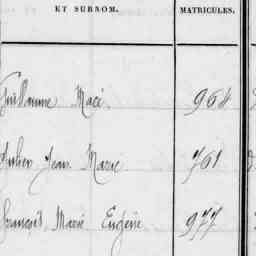 ET SURNOM. MATRICULES.
Guillaume Macé 964
Julien Jean Marie 761
François Marie Eugène 977